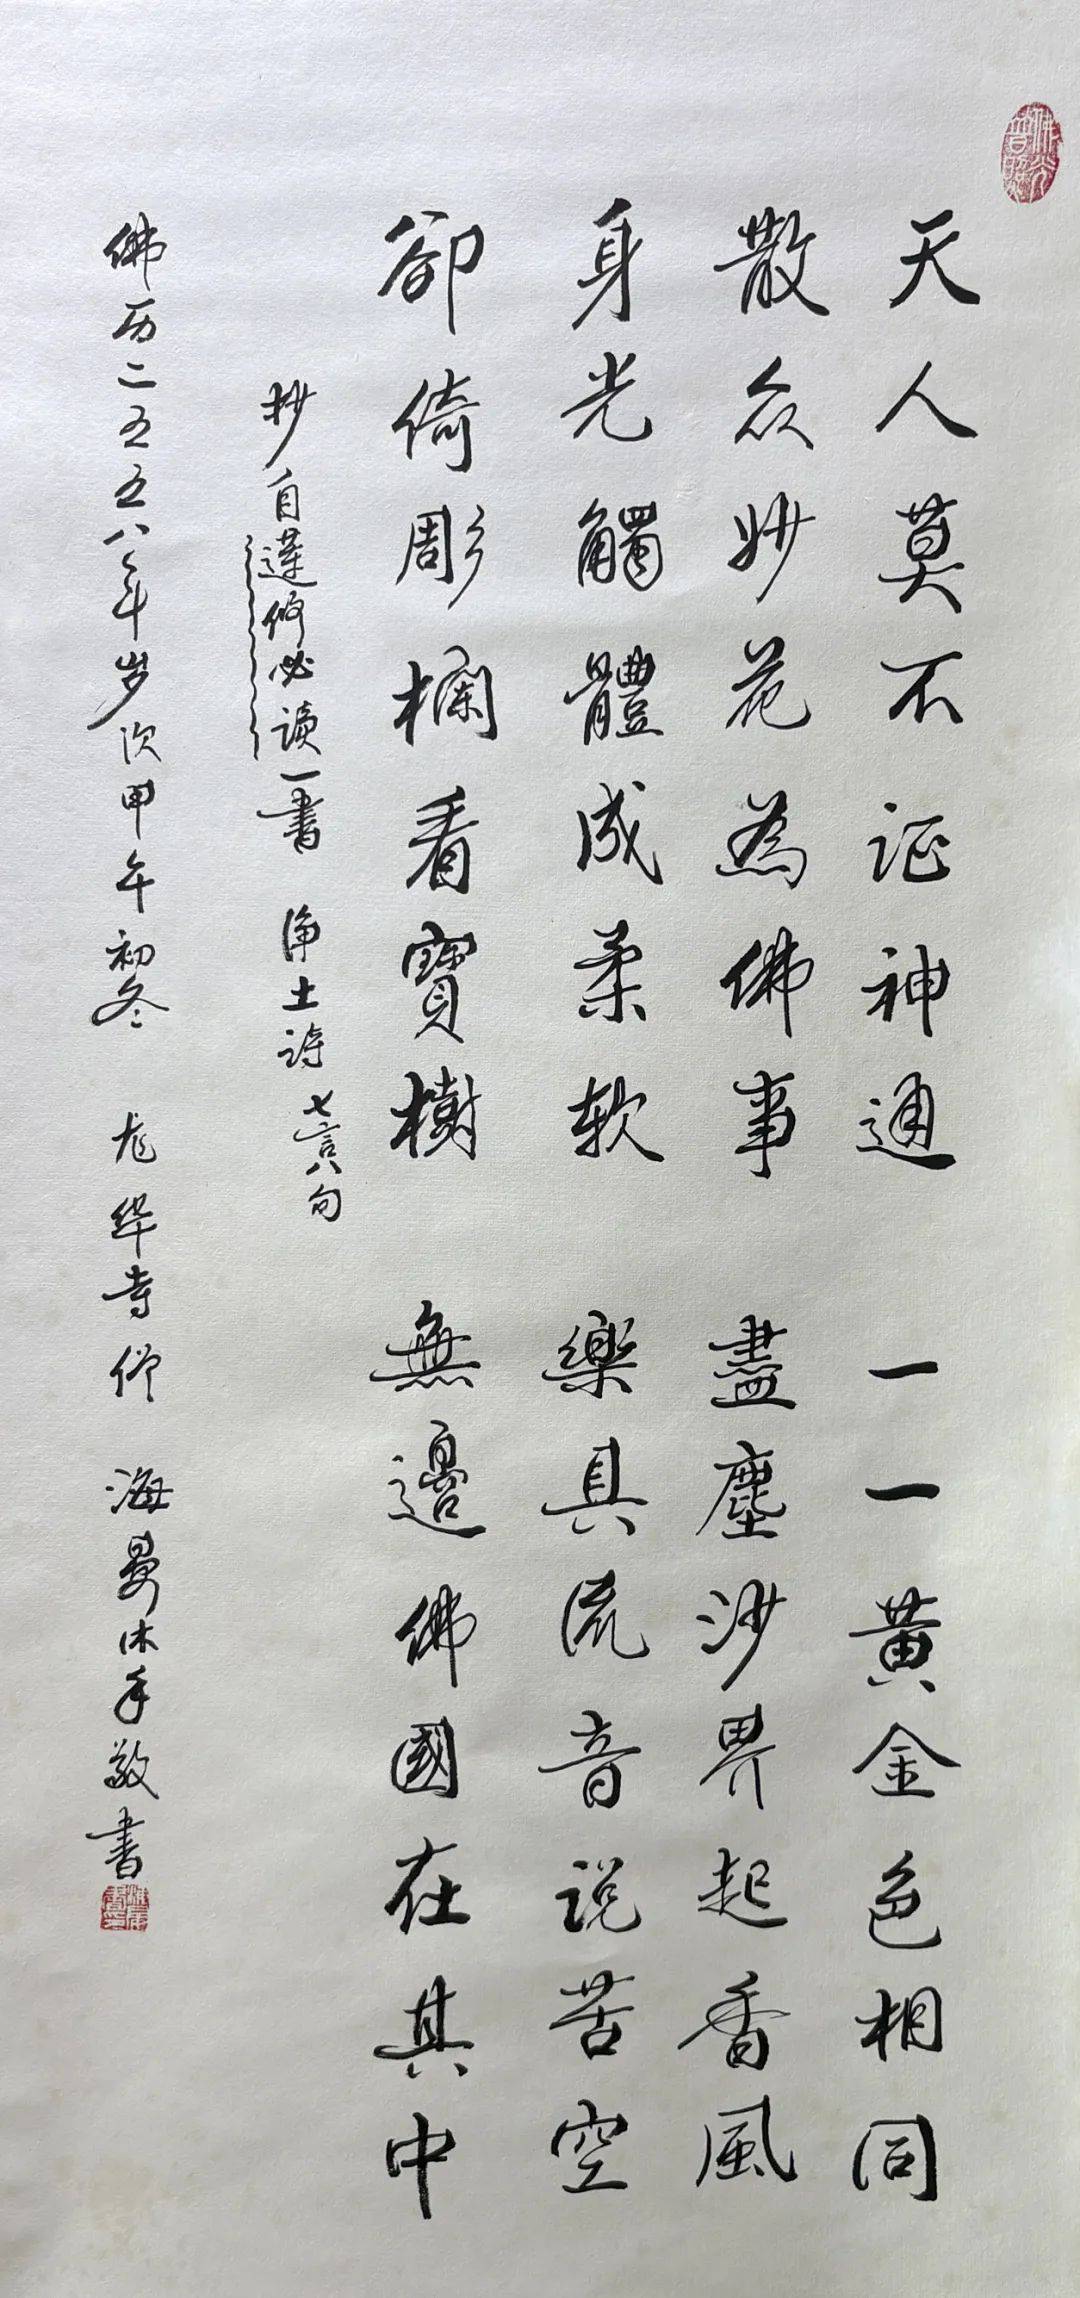 天人莫不证神通 一一黄金色相同
散众妙花為佛事 盡塵沙界起香風
身光觸體成柔软 樂具流音说苦空
卻倚彫欄看寶樹 無邊佛國在其中
抄自蓮修必读一書 净土诗 七言八句
佛历二五五八年岁次甲午初冬 龙华寺僧 海曼沐手敬書